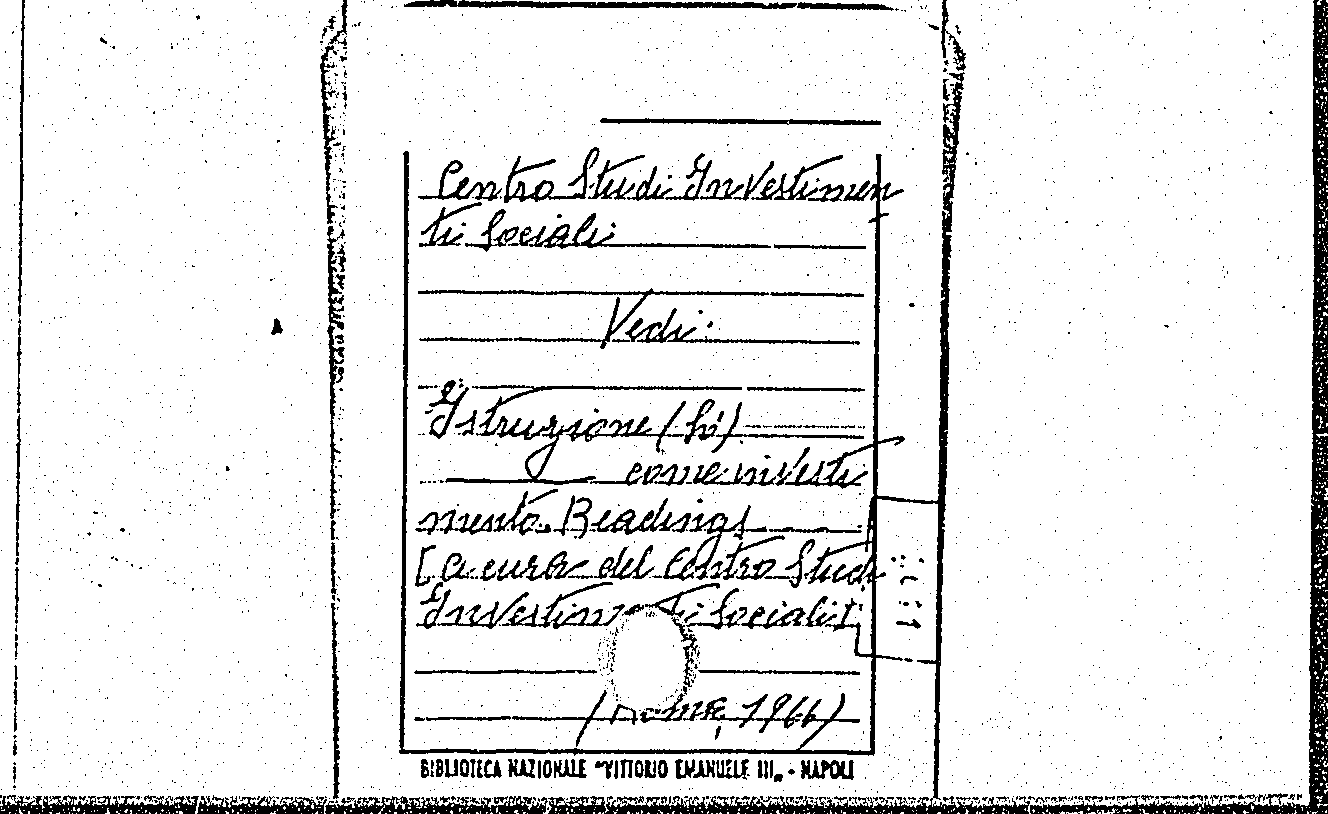 Centro Studi Investimen
ti Sociali
Vedi:
Istruzione (L')
come investi
mento. Readings
[A cura del Centro Studi
Investimenti Sociali].
(Roma, 1966)
BIBLIOTECA NAZIONALE "VITTORIO EMANUELE III„ - NAPOLI